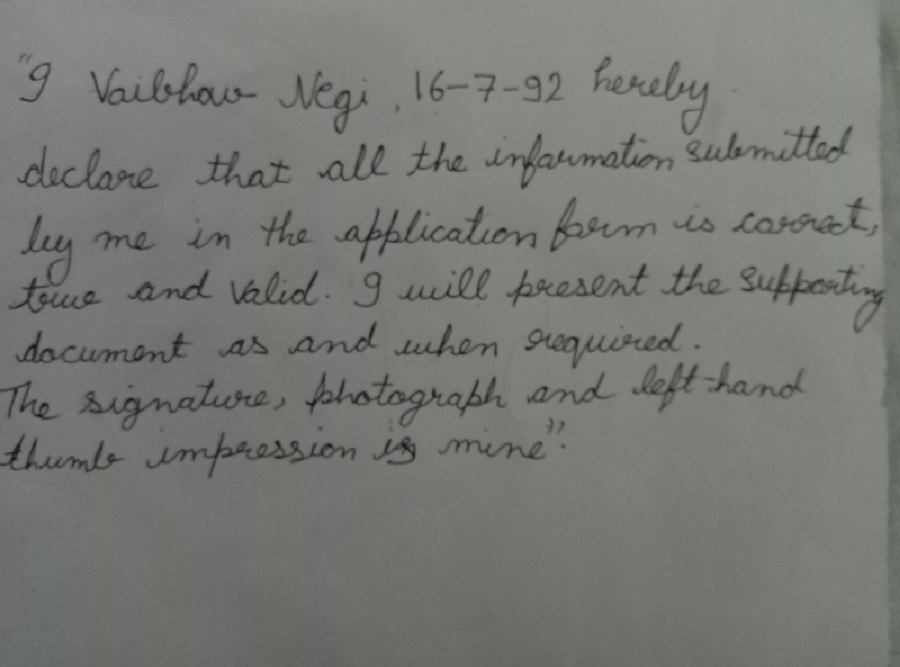 "I Vaibhav Negi, 16-7-92 hereby
declare that all the information submitted
by me in the application form is correct,
true and valid. I will present the supporting
document as and when required.
The signature, photograph and left-hand
thumb impression is mine".